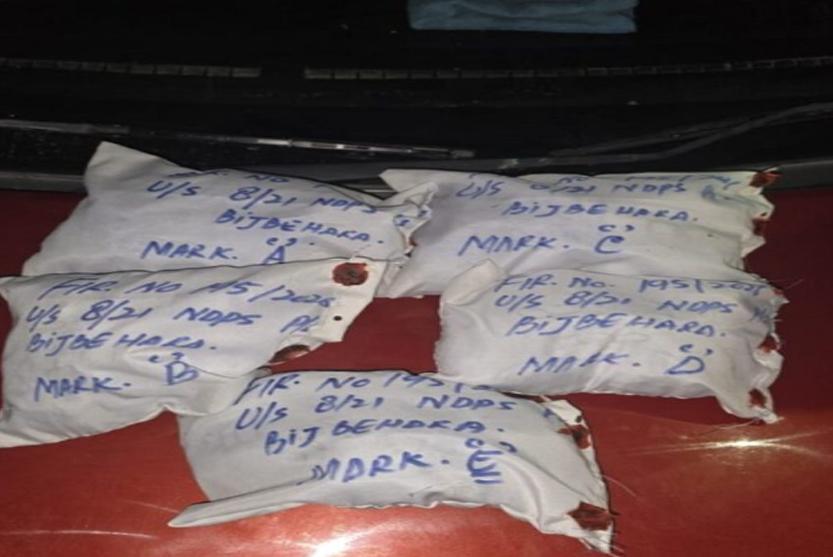 NO
U/S 8/21 NDPS
BIJBEHARA.
MARK. "A"
U/S 8/21 NDPS
BIJBEHARA.
MARK. "C"
FIR. NO
U/S 8/21 NDPS
BIJBEHARA.
MARK. "B"
FIR. No. 195/202
U/S 8/21 NDPS
BIJBEHARA.
MARK. "D"
FIR. NO 195/2
U/S 8/21 NDPS
BIJBEHARA.
MARK. "E"